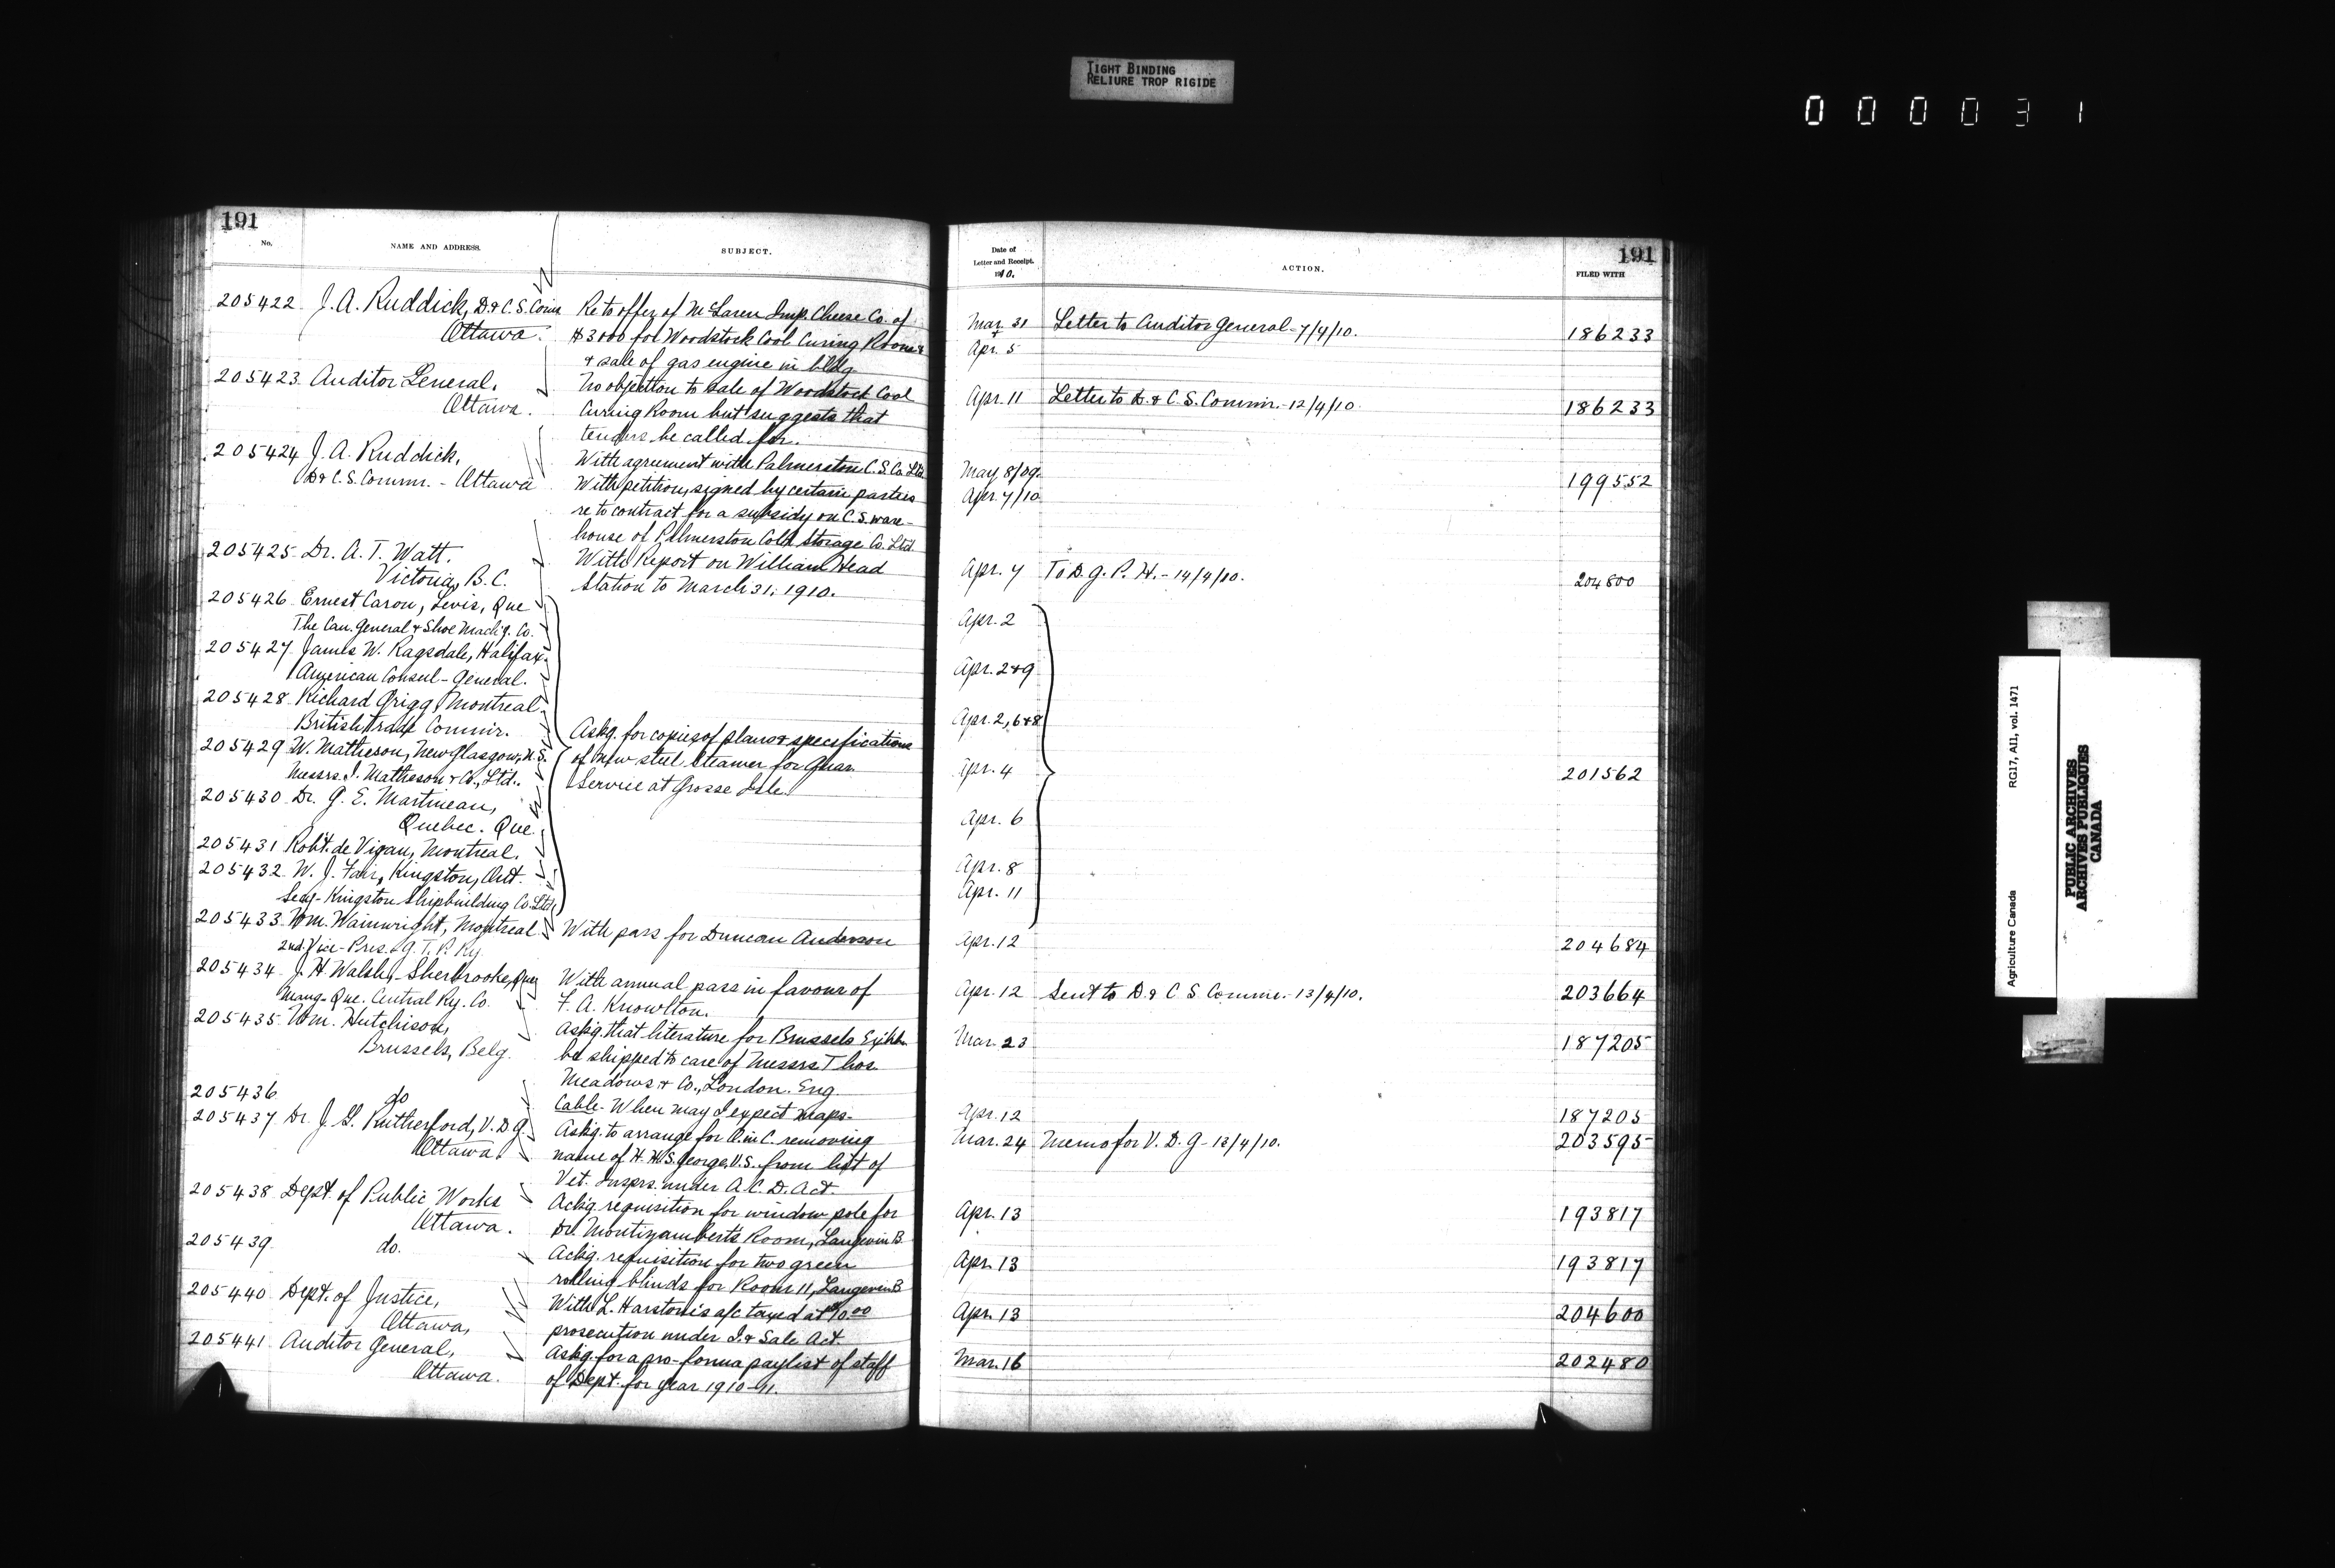 TIGHT BINDING
RELIURE TROP RIGIDE
000031
191
No.
NAME AND ADDRESS.
SUBJECT.
205422 J. A. Ruddick, D. & C. S. Comr
Ottawa.
Re to offer of McLaren Imp. Cheese Co. of
$3000 for Woodstock Cool Curing Rooms
& sale of gas engine in bldg
205423 Auditor General,
Ottawa.
No objection to sale of Woodstock Cool
Curing Room but suggests that
tenders be called for.
205424 J. A. Ruddick,
D & C. S. Commr. - Ottawa
With agreement with Palmerston C. S. Co. Ltd.
With petition, signed by certain parties
re to contract for a subsidy on C. S. ware-
house of Palmerston Cold Storage Co. Ltd.
205425 Dr. A. T. Watt.
Victoria, B. C.
With Report on William Head
Station to March 31, 1910.
205426 Ernest Caron, Levis, Que
The Can. General & Shoe Mach'y. Co.
205427 James W. Ragsdale, Halifax-
American Consul-General.
205428 Richard Grigg, Montreal
British Trade Commr.
205429 W. Matheson, New Glasgow, N. S.
Messrs. I. Matheson & Co., Ltd.
205430 Dr. G. E. Martineau,
Quebec. Que.
205431 Robt. de Vigan, Montreal.
205432 W. J. Fair, Kingston, Ont.
Secy- Kingston Shipbuilding Co. Ltd.
Askg. for copies of plans & specifications
of new steel steamer for Quar.
Service at Grosse Isle.
205433 Wm. Wainwright, Montreal
2nd. Vice-Pres. G. T. P. Ry
With pass for Duncan Anderson
205434 J. H. Walsh,- Sherbrooke, Que
Mang- Que. Central Ry. Co.
With annual pass in favour of
F. A. Knowlton.
205435 Wm. Hutchison,
Brussels, Belg.
Askg. that literature for Brussels Exhbn.
be shipped to care of Messrs Thos
Meadows & Co., London. Eng.
205436 do
Cable- When may I expect maps.
205437 Dr. J. G. Rutherford, V. D. G.
Ottawa.
Askg. to arrange for O. in C. removing
name of H. H. S. George, V. S. from list of
Vet. Insprs. under A. C. D. Act.
205438 Dept. of Public Works
Ottawa.
Ackg. requisition for window pole for
Dr. Montizambert's Room, Langevin B.
205439 do.
Ackg. requisition for two green
rolling blinds for Room 11, Langevin B
205440 Dept. of Justice,
Ottawa,
With L. Harston's a/c taxed at $10.00
prosecution under I. & Sale Act.
205441 Auditor General,
Ottawa.
Askg. for a pro-forma paylist of staff
of Dept. for year 1910-11.
191
Date of
Letter and Receipt.
1910.
ACTION.
FILED WITH
Mar. 31 Letter to Auditor General- 7/4/10. 186233
&
Apr. 5
Apr. 11 Letter to D. & C. S. Commr.- 12/4/10. 186233
May 8/09. 199552
Apr. 7/10
Apr. 7 To D. G. P. H. - 14/4/10. 204800
Apr. 2
Apr. 2 & 9
Apr. 2, 6 & 8
Apr. 4 201562
Apr. 6
Apr. 8
Apr. 11
Apr. 12 204684
Apr. 12 Sent to D. & C S Commr.- 13/4/10. 203664
Mar. 23 187205
Apr. 12 187205
Mar. 24 Memo for V. D. G- 13/4/10. 203595
Apr. 13 193817
Apr. 13 193817
Apr. 13 204600
Mar. 16 202480
Agriculture Canada RG17, AII, vol. 1471
PUBLIC ARCHIVES
ARCHIVES PUBLIQUES
CANADA